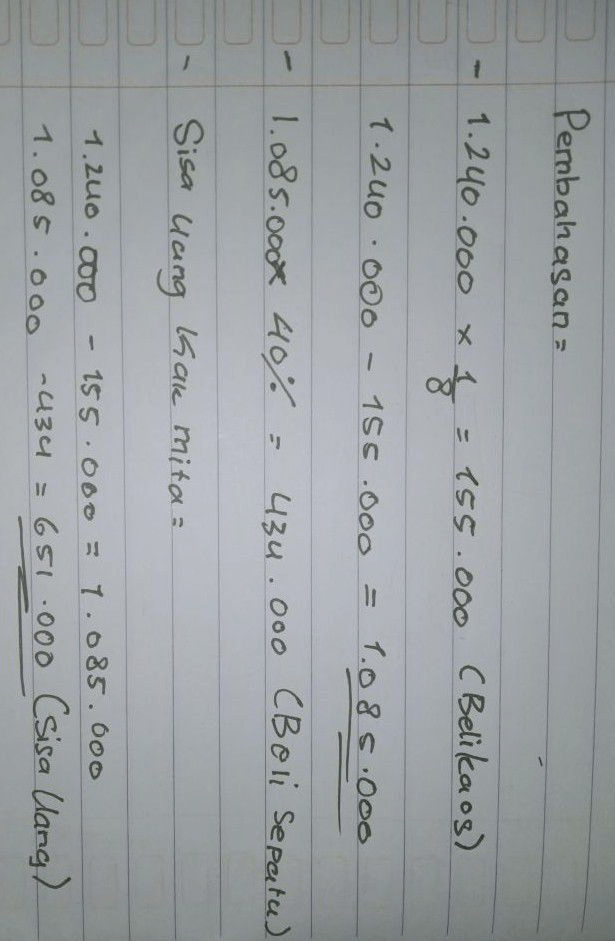 Pembahasan =
- 1.240.000 × 1/8 = 155.000 (Beli kaos)
1.240.000 - 155.000 = 1.085.000
- 1.085.000 × 40% = 434.000 (Beli Sepatu)
- Sisa Uang Kak mita =
1.240.000 - 155.000 = 1.085.000
1.085.000 - 434 = 651.000 (Sisa Uang)